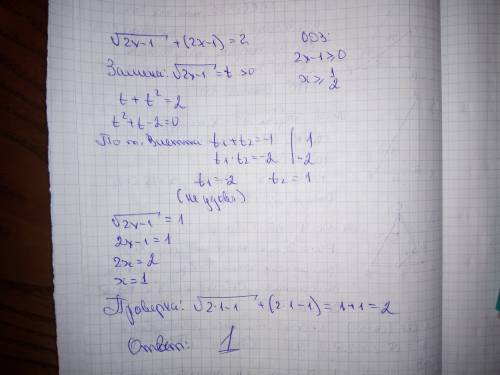 √2x-1 + (2x-1) = 2
ОДЗ:
2x-1 ≥ 0
x ≥ 1/2
Замена: √2x-1 = t > 0
t + t² = 2
t² + t - 2 = 0
По т. Виетта t₁ + t₂ = -1 | 1
t₁ · t₂ = -2 | -2
t₁ = -2 t₂ = 1
(не удовл)
√2x-1 = 1
2x-1 = 1
2x = 2
x = 1
Проверка: √2·1-1 + (2·1-1) = 1+1 = 2
Ответ: 1